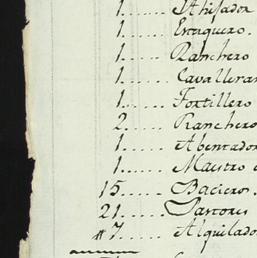 1...... Ahijador
1...... Enteguero.
1...... Ranchero
1...... Cavalleran
1...... Tortillero
2...... Ranchero
1...... Abentador
1...... Maestro
15..... Bacieros.
21..... Pastores
#7..... Alquilado